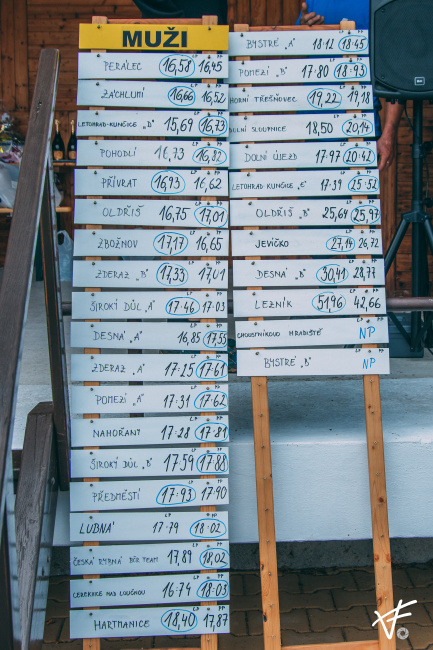 MUŽI
PERÁLEC 16,58 16,45
ZÁCHLUMÍ 16,66 16,52
LETOHRAD-KUNČICE „D" 15,69 16,73
POHODLÍ 16,73 16,82
PŘÍVRAT 16,93 16,62
OLDŘIŠ 16,75 17,01
ZBOŽNOV 17,17 16,65
ZDERAZ „B" 17,33 17,01
ŠIROKÝ DŮL „A" 17,46 17,03
DESNÁ „A" 16,85 17,55
ZDERAZ „A" 17,25 17,61
POMEZÍ „A" 17,31 17,62
NAHOŘANY 17,28 17,81
ŠIROKÝ DŮL „B" 17,59 17,88
PŘEDMĚSTÍ 17,93 17,90
LUBNÁ 17,79 18,02
ČESKÁ RYBNÁ TEAM 17,89 18,02
CEREKVICE NAD LOUČNOU 16,74 18,03
HARTMANICE 18,40 17,87
BYSTRÉ „A" 18,12 18,45
POMEZÍ „B" 17,80 18,93
HORNÍ TŘEŠŇOVEC 19,22 19,18
DOLNÍ SLOUPNICE 18,50 20,14
DOLNÍ ÚJEZD 17,97 20,42
LETOHRAD KUNČICE „C" 17,39 25,52
OLDŘIŠ „B" 25,64 25,97
JEVÍČKO 27,14 26,72
DESNÁ „B" 30,41 28,77
LEZNÍK 51,96 42,66
CHOUSTNÍKOVO HRADIŠTĚ NP
BYSTRÉ „B" NP